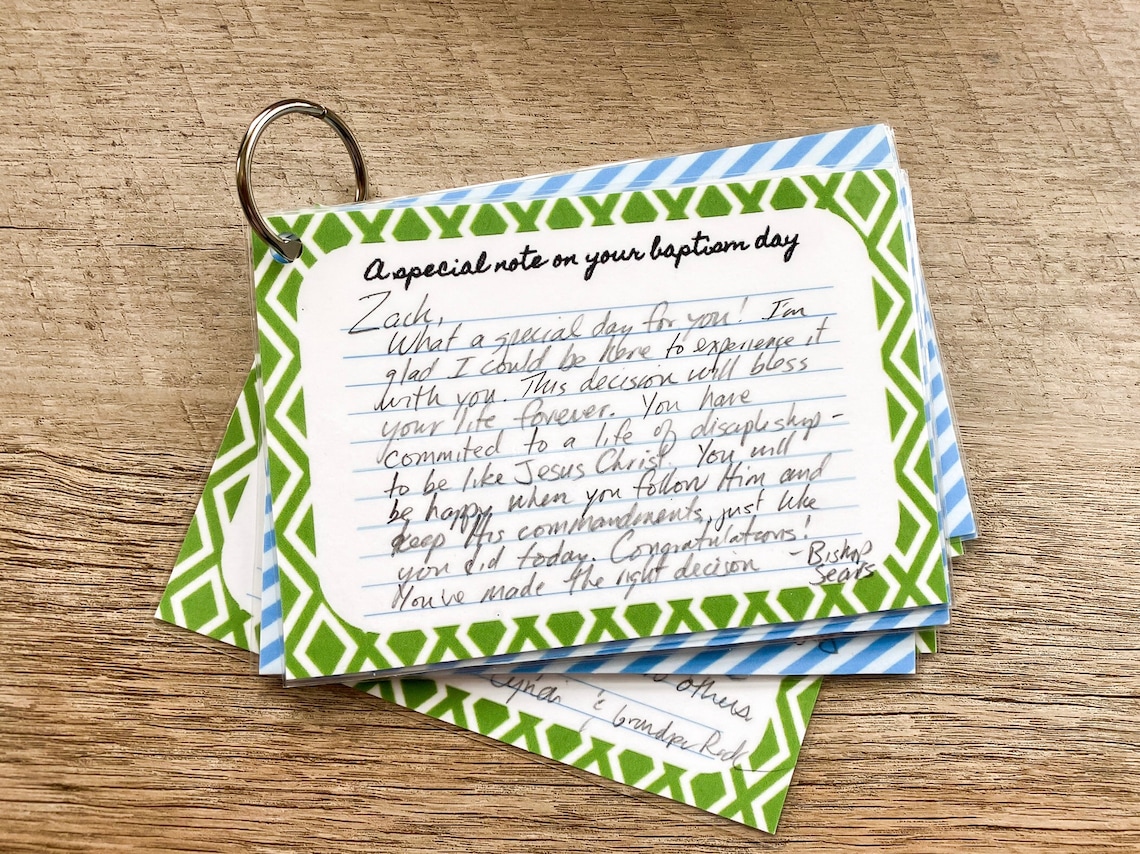 A special note on your baptism day
Zach,
What a special day for you! I'm
glad I could be here to experience it
with you. This decision will bless
your life forever. You have
commited to a life of discipleship -
to be like Jesus Christ. You will
be happy when you follow Him and
keep His commandments, just like
you did today. Congratulations!
You've made the right decision
- Bishop
Sears
others
& Grandpa